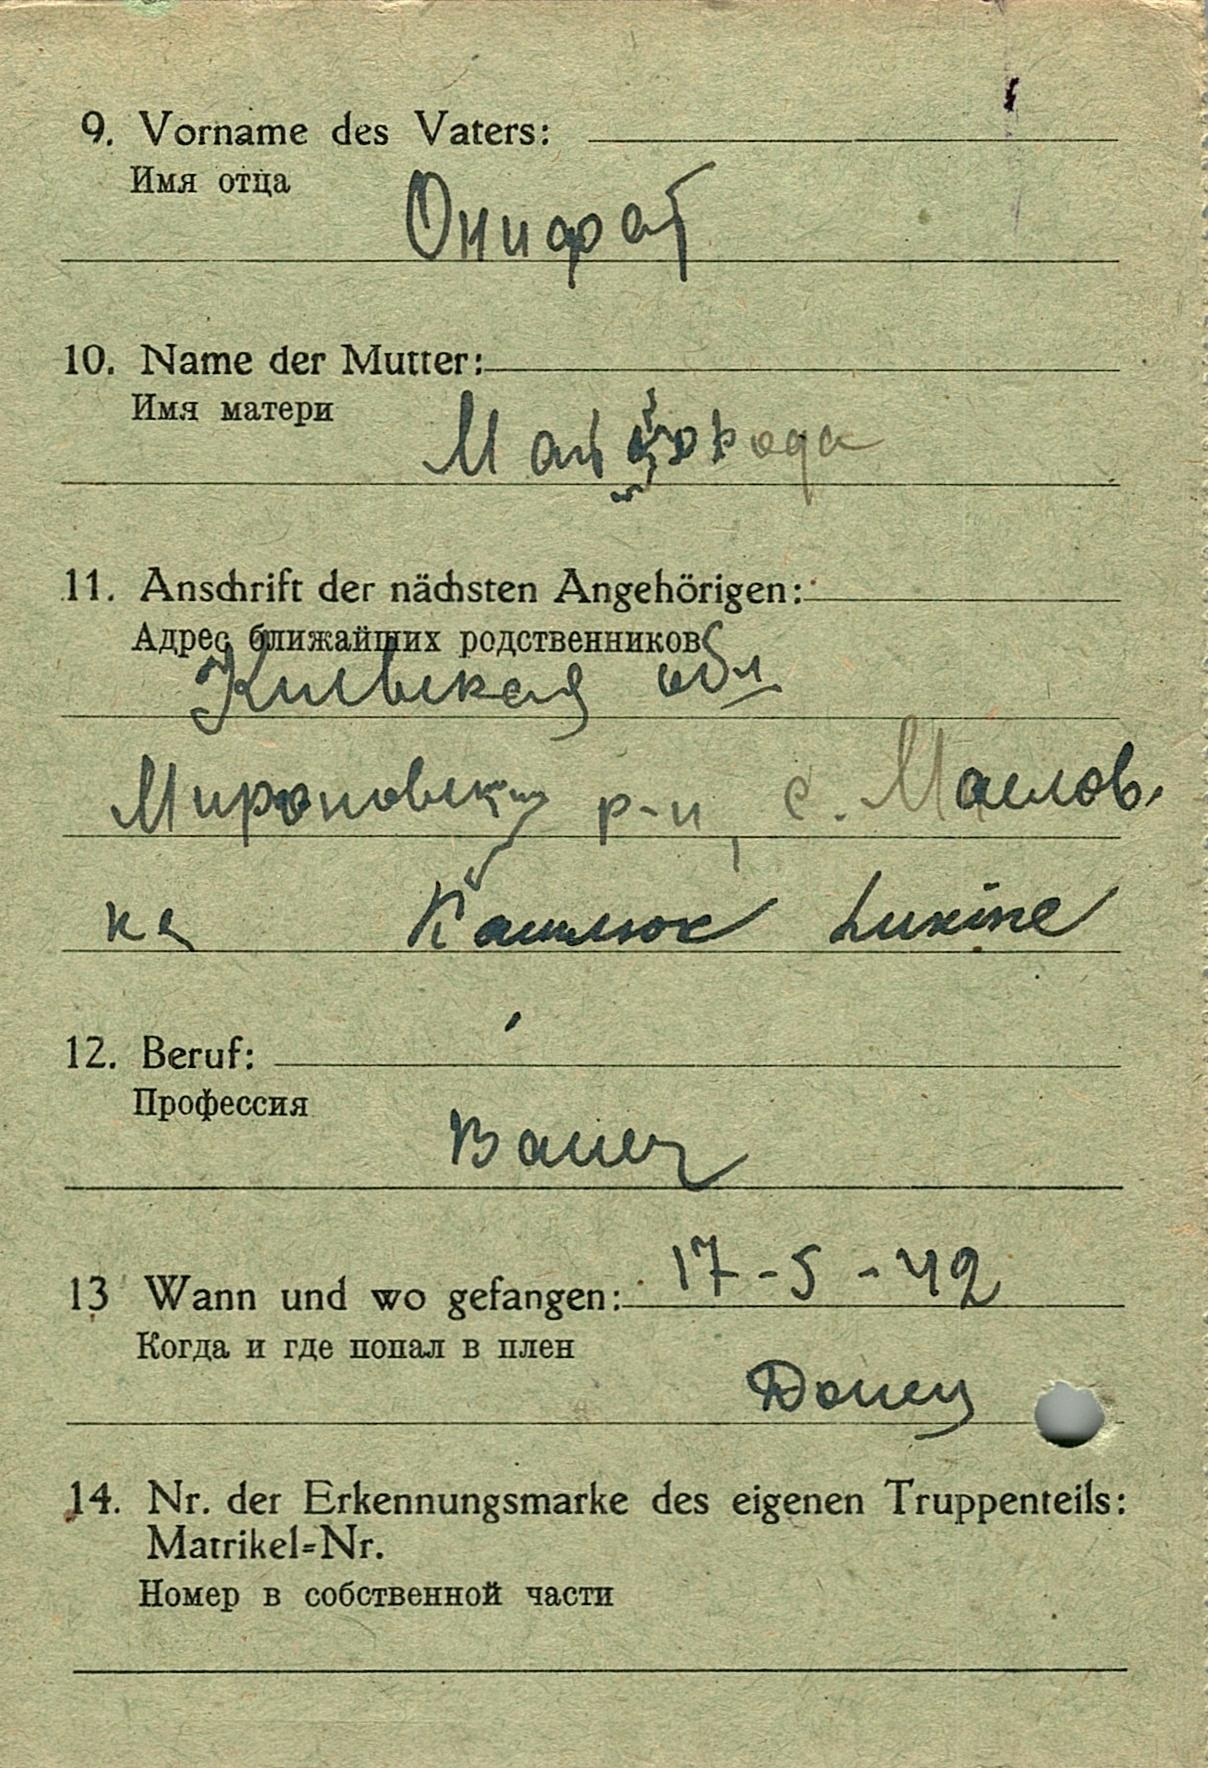 9. Vorname des Vaters:
Имя отца
Онифат
10. Name der Mutter:
Имя матери
11. Anschrift der nächsten Angehörigen:
Адрес ближайших родственников
Киевская обл
Мироновский р-н, с. Маслов-
ка Кашлюк
12. Beruf:
Профессия
13 Wann und wo gefangen: 17-5-42
Когда и где попал в плен
Донец
14. Nr. der Erkennungsmarke des eigenen Truppenteils:
Matrikel=Nr.
Номер в собственной части